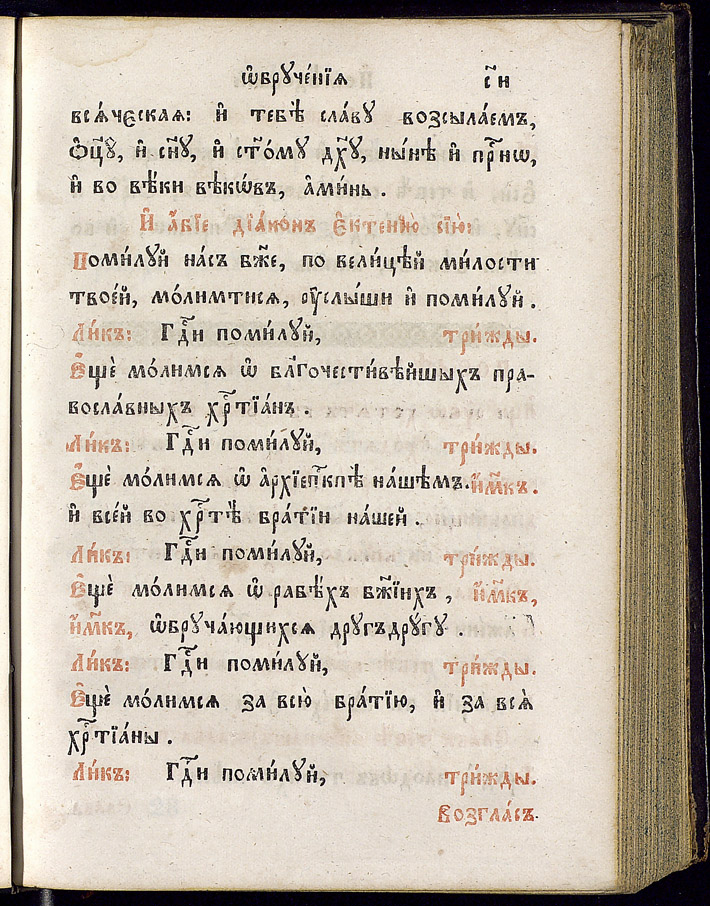 ѡ҆брꙋче́нїѧ с҃и
всѧ́ческаѧ: и҆ тебѣ̀ сла́вꙋ возсыла́емъ,
Ѻ҆ц҃ꙋ̀, и҆ сн҃ꙋ, и҆ ст҃о́мꙋ дх҃ꙋ, ны́нѣ и҆ прⷭ҇нѡ,
и҆ во вѣ́ки вѣкѡ́въ, а҆ми́нь.
И҆ а҆́бїе дїа́конъ є҆ктенїю̀ сїю̀:
Поми́лꙋй на́съ бж҃е, по вели́цѣй ми́лости
твое́й, мо́лимтисѧ, ᲂу҆слы́ши и҆ поми́лꙋй.
Ли́къ: Гдⷭ҇и поми́лꙋй, три́жды.
Є҆щѐ мо́лимсѧ ѡ҆ бл҃гочести́вѣйшыхъ пра-
восла́вныхъ хрⷭ҇тїа́нъ.
Ли́къ: Гдⷭ҇и поми́лꙋй, три́жды.
Є҆щѐ мо́лимсѧ ѡ҆ а҆рхїепⷭ҇кпѣ на́шемъ. и҆м҃къ.
и҆ все́й во хрⷭ҇тѣ̀ бра́тїи на́шей.
Ли́къ: Гдⷭ҇и поми́лꙋй, три́жды.
Є҆щѐ мо́лимсѧ ѡ҆ рабѣ́хъ бж҃їихъ, и҆м҃къ,
и҆м҃къ, ѡ҆брꙋча́ющихсѧ дрꙋгъдрꙋ́гꙋ.
Ли́къ: Гдⷭ҇и поми́лꙋй, три́жды.
Є҆щѐ мо́лимсѧ за всю̀ бра́тїю, и҆ за всѧ̑
хрⷭ҇тїа́ны.
Ли́къ: Гдⷭ҇и поми́лꙋй, три́жды.
Возгла́съ.